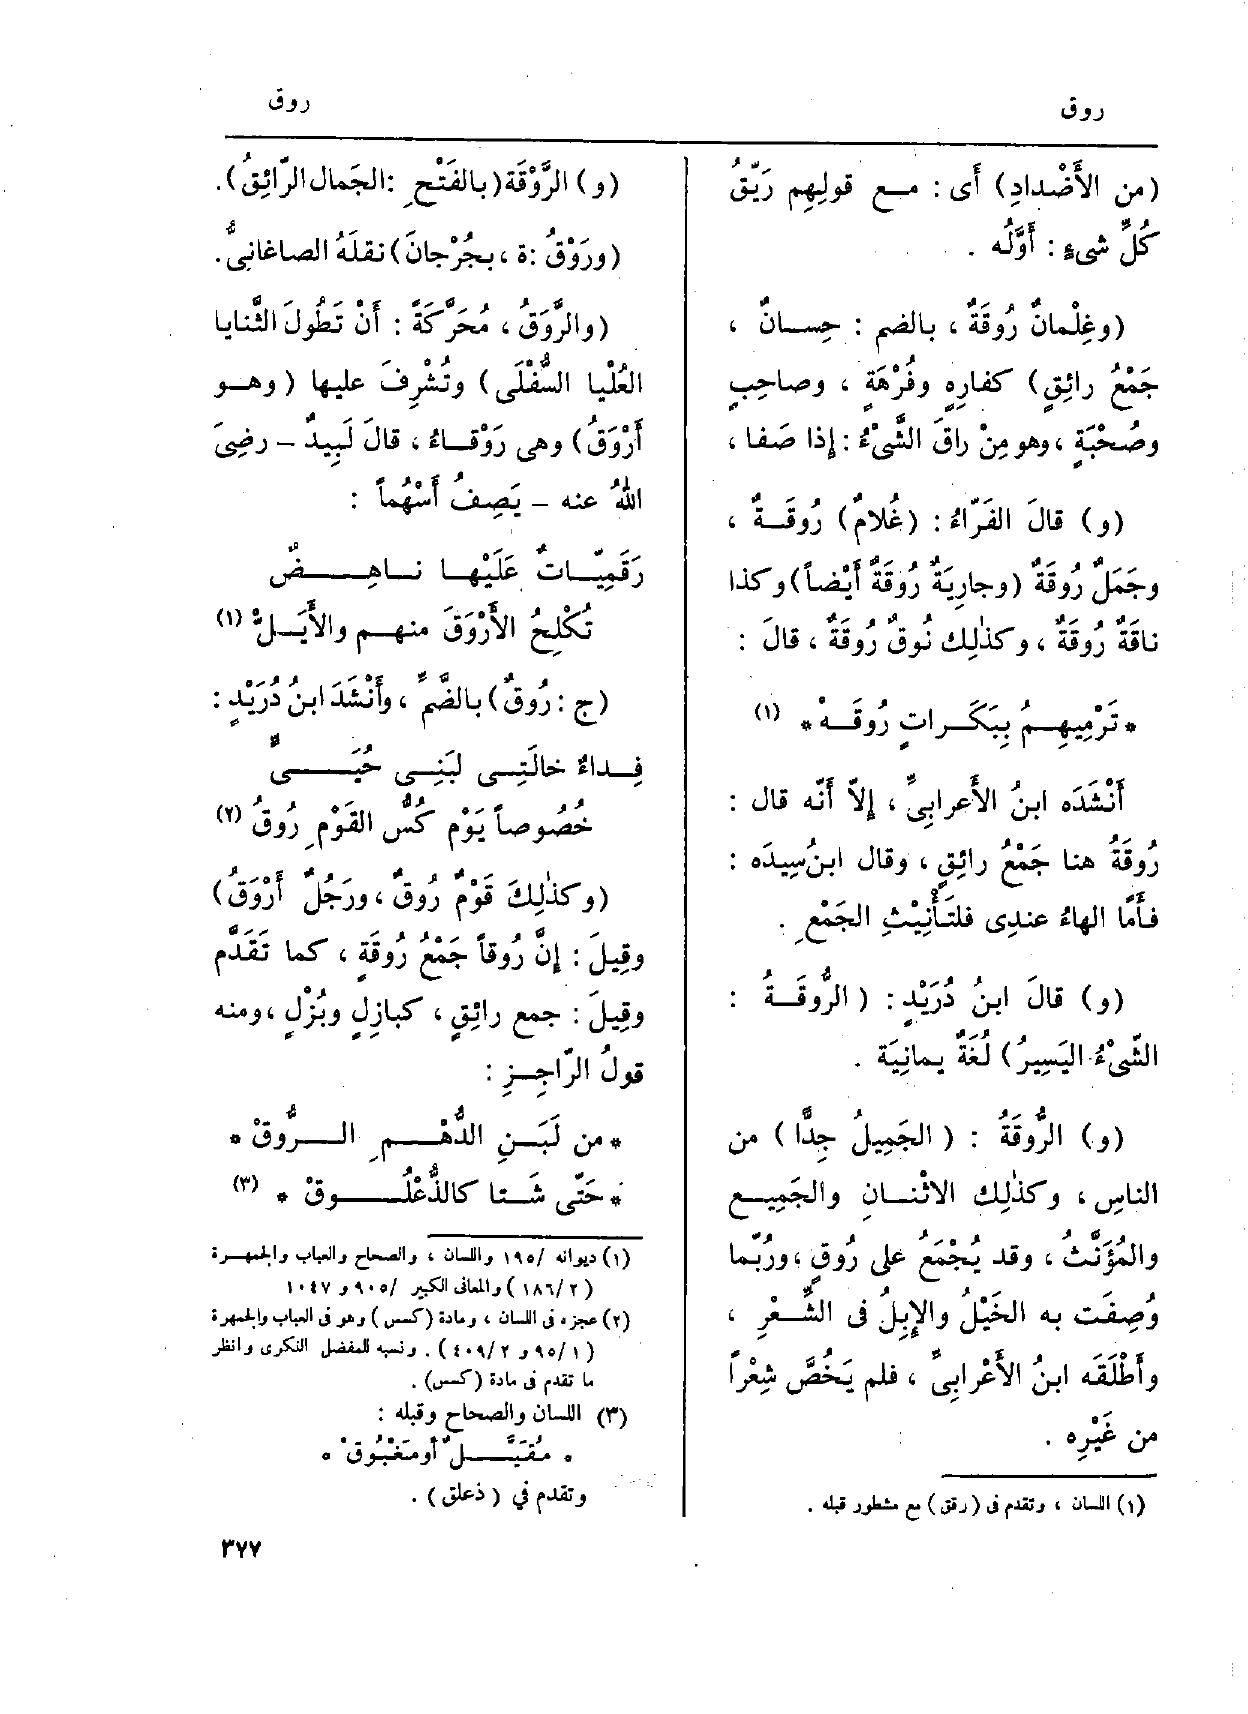 روق
روق
(من الأَضْدادِ) أى : مـع قولِهِم رَيِّقُ
كُلِّ شىءٍ : أَوَّلُه .
(وغِلْمانٌ رُوقَةٌ ، بالضم : حِســانٌ ،
جَمْعُ رائِقٍ) كفارِهٍ وفُرْهَةٍ ، وصاحِبٍ
وصُحْبَةٍ ، وهو مِنْ راقَ الشَّىْءُ : إذا صَفا ،
(و) قالَ الفَرّاءُ : (غُلامٌ) رُوقَــةٌ ،
وجَمَلٌ رُوقَةٌ (وجارِيَةٌ رُوقَةٌ أَيْضاً) وكذا
ناقَةٌ رُوقَةٌ ، وكذٰلِك نُوقٌ رُوقَةٌ ، قالَ :
* تَرْمِيهِـمُ بِبَكَـراتٍ رُوقَـهْ * (١)
أَنْشَدَه ابنُ الأَعرابِىِّ ، إِلاّ أَنّه قال :
رُوقَةُ هنا جَمْعُ رائِقٍ ، وقال ابنُ سِيدَه :
فأَمّا الهاءُ عندِى فلتَأْنِيْثِ الجَمْعِ .
(و) قالَ ابنُ دُرَيْدٍ : ( الرُّوقَــةُ :
الشَّىْءُ اليَسِيرُ) لُغَةٌ يمانِيَة .
(و) الرُّوقَةُ : ( الجَمِيلُ جِدًّا ) من
الناسِ ، وكذٰلِك الاثْنــانِ والجَمِيـع
والمُؤَنَّثُ ، وقد يُجْمَعُ على رُوقٍ ، ورُبَّما
وُصِفَت به الخَيْلُ والإِبِلُ فى الشِّـعْرِ ،
وأَطْلَقَه ابنُ الأَعْرابِىِّ ، فلم يَخُصَّ شِعْراً
من غَيْرِه .
(١) اللسان ، وتقدم فى (رقق) مع مشطور قبله .
(و) الرَّوْقَة (بالفَتْحِ : الجَمال الرّائِقُ).
(ورَوْقُ : ة ، بجُرْجانَ) نقلَهُ الصاغانِىُّ .
(والرَّوَقُ ، مُحَرَّكَةً : أَنْ تَطُولَ الثَّنايا
العُلْيا السُّفْلَى) وتُشْرِفَ عليها ( وهــو
أَرْوَقُ) وهى رَوْقــاءُ ، قالَ لَبِيدٌ – رضِىَ
اللهُ عنه – يَصِفُ أَسْهُماً :
رَقَمِيّــاتٌ عَلَيْهـا نـاهِـــضٌ
تُكْلِحُ الأَرْوَقَ منهــم والأَيَــلّْ (١)
(ج : رُوقٌ) بالضَّمِّ ، وأَنْشَدَ ابنُ دُرَيْدٍ :
فِــداءٌ خالَتِــى لبَنِــى حُيَـــىٍّ
خُصُوصاً يَوْم كُسُّ القَوْمِ رُوقُ (٢)
(وكذٰلِكَ قَوْمٌ رُوقٌ ، ورَجُلٌ أَرْوَقُ)
وقِيلَ : إِنَّ رُوقاً جَمْعُ رُوقَةٍ ، كما تَقَدَّم
وقِيلَ : جمع رائِقٍ ، كبازِلٍ وبُزْلٍ ، ومنه
قولُ الرّاجِــزِ :
* من لَبَــنِ الدُّهْــمِ الــرُّوقْ *
* حَتَّى شَــتا كالذُّعْلُــــوقْ * (٣)
(١) ديوانه /١٩٥ واللسان ، والصحاح والعباب والجمهـرة
( ١٨٦/٢ ) والمعانى الكبير /٩٠٥ و ١٠٤٧
(٢) عجزه فى اللسان ، ومادة (كسس) وهو فى العباب والجمهرة
( ٩٥/١ و ٤٠٩/٢ ) . ونسبه للمفضل النكرى وانظر
ما تقدم فى مادة (كسس) .
(٣) اللسان والصحاح وقبله :
* مُقَيَّـــلٌ أو مَغْبُوقْ *
وتقدم في ( ذعلق ) .
٣٧٧